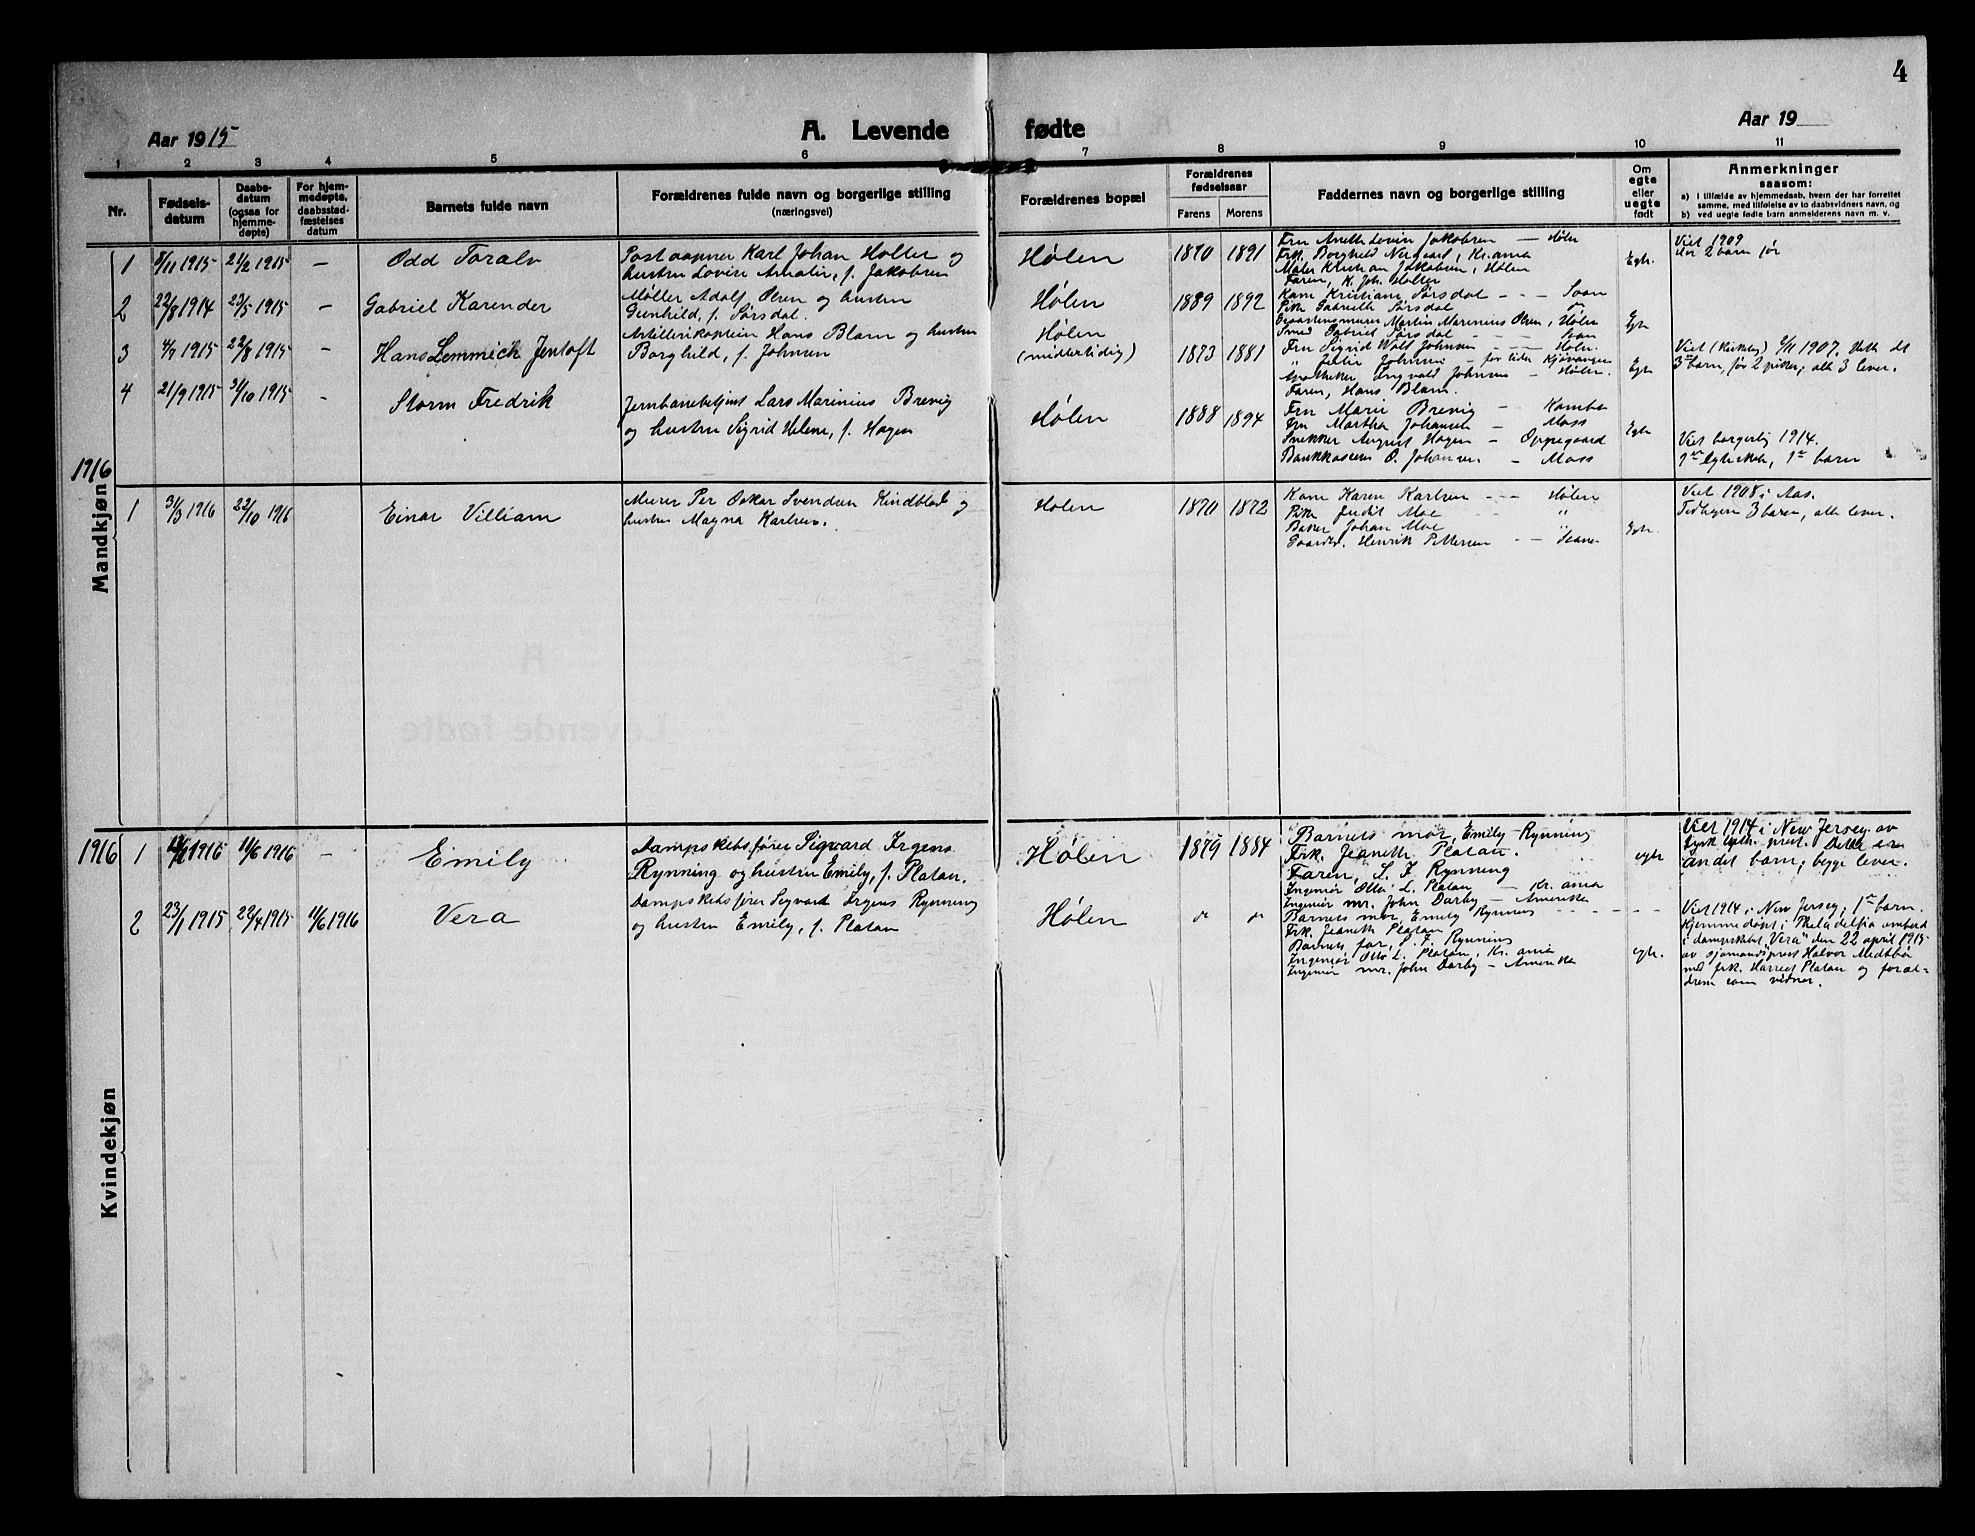 4
Aar 1915
A. Levende fødte
Aar 19
1 2 3 4 5 6 7 8 9 10 11
Nr.
Fødselsdatum
Daabsdatum (ogsaa for hjemmedøpte)
For hjemmedøpte, daabsstadfæstelses datum
Barnets fulde navn
Forældrenes fulde navn og borgerlige stilling (næringsvei)
Forældrenes bopæl
Forældrenes fødselsaar
Farens Morens
Faddernes navn og borgerlige stilling
Om egte eller uegte født
Anmerkninger
saasom:
a) I tilfælde av hjemmedaab, hvem der har forrettet
samme, med tilføielse av to daabsvidners navn, og
b) ved uegte fødte barn anmelderens navn m. v.
Mandkjøn
1 21/2 1915 – Odd Toralv
Postaapner Karl Johan Holter og
hustru Lovise Amalie, f. Jakobsen
Hølen 1870 1891
Frk. Borghild Nergaard, Kr.ania
Maler Kristian Jakobsen, Hølen
Faren, K. Joh. Holter
Egte.
Viet 1909
2 barn før
2 22/8 1914 23/5 1915 – Gabriel Karender
Møller Adolf Olsen og hustru
Gunhild, f. Sørsdal.
Hølen 1889 1892
Kone Kristiane Sørsdal - - - Soon
Pike Gabrielle Sørsdal
Martin Marinius Olsen, Hølen
Smed Gabriel Sørsdal - - - Soon
Egte
3 4/7 1915 22/8 1915 – Hans Lemmich Jentoft
Artillerikaptein Hans Blom og hustru
Borghild, f. Johnsen
Hølen
(midlertidig) 1873 1881
Fru Sigrid Wold Johnsen - - - Hølen.
Apotheker Ingvald Johnsen – Hølen.
Faren, Hans Blom.
Egte
Viet 1907. Dette det
3die barn, før 2 piker; alle 3 lever.
4 21/9 1915 31/10 1915 - Storm Fredrik
Jernbanebetjent Lars Marinius Brevig
og hustru Sigrid Helene, f. Hagen
Hølen 1888 1894
Fru Marie Brevig – Kambo
Fru Martha Johansen – Moss
Snekker August Hagen – Oppegaard
Bankkasserer O. Johansen – Moss
Egte
Viet borgerlig 1914.
1ste barn
1916
1 31/3 1916 22/10 1916 Einar Villiam
Murer Per Oskar Svendsen Kindblad og
hustru Magna Karlsen.
Hølen 1870 1872
Kone Karen Karlsen - - - Hølen
Pike Judit Moe - - "
Baker Johan Moe "
Henrik Pettersen - -
Egte.
Viet 1908 i Aas.
Tidligere 3 barn, alle lever.
Kvindekjøn
1916
1 11/6 1916 - Emily
Dampskibsfører Sigvard Irgens
Rynning og hustru Emily, f. Platou.
Hølen 1879 1884
Barnets mor Emily Rynning
Frk. Jeaneth Platou.
Faren, S. I. Rynning
Ingeniør Otto L. Platou – Kr. ania
Ingeniør mr. John Darby – Amerika
egte
Viet 1914 i New Jersey av
tysk luth. prest. Dette er
andet barn; begge lever.
2 23/1 1915 22/4 1915 11/6 1916 Vera
Dampskibsfører Sigvard Irgens Rynning
og hustru Emily, f. Platou
Hølen do do
Barnets mor, Emily Rynning
Frk. Jeaneth Platou
Barnets far, S. I. Rynning
Ingeniør Otto L. Platou, Kr. ania
Ingeniør mr. John Darby – Amerika
egte.
Viet 1914 i New Jersey; 1ste barn.
Hjemmedøpt i Philadelfia ombord
i dampskibet "Vera" den 22 april 1915
av sjømandsprest Halvor Midtbø
med frk. Harriet Platou og foræl-
drene som vidner.